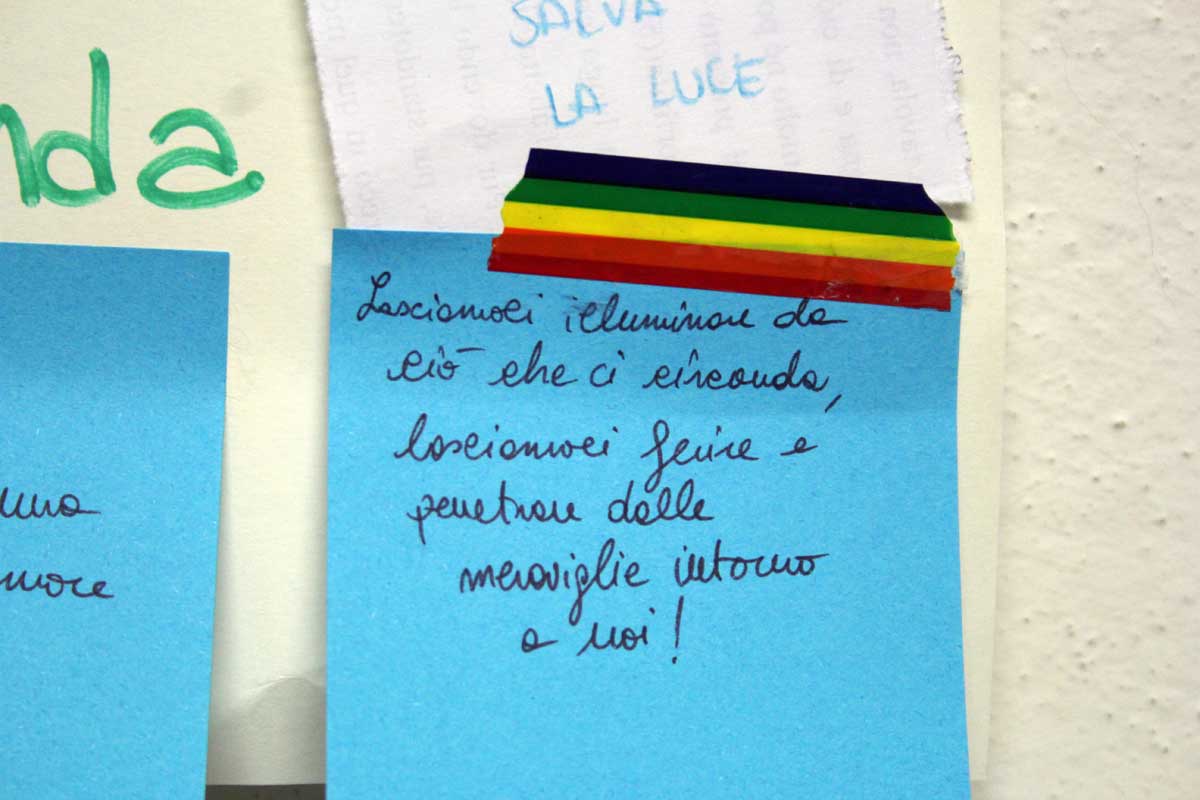 SALVA
LA LUCE
nda
Lasciamoci illuminare da
ciò che ci circonda,
lasciamoci ferire e
penetrare dalle
meraviglie intorno
a noi!
una
more